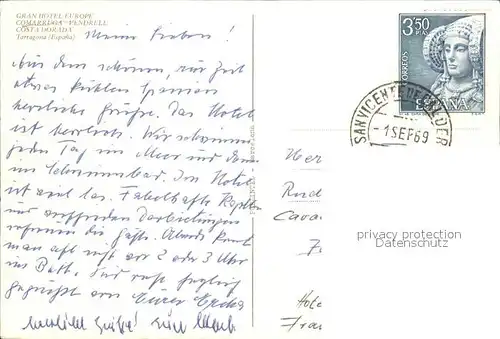 GRAN HOTEL EUROPE
COMARRUGA - VENDRELL
COSTA DORADA
Tarragona (España)
Meine Lieben!
Aus dem schönen, zur Zeit
etwas kühlen Spanien
herzliche Grüße. Das Hotel
ist herrlich. Wir schwimmen
jeden Tag im Meer und dann
im Schwimmbad. Im Hotel
ist viel los. Fabelhafte
und Darbietungen
die Gäste. Abends kommt
man oft nicht vor 2 oder 3 Uhr
ins Bett. Für heute
gegrüßt von Eurer
herzliche Grüße! Euer
3,50
PTA
CORREOS
ESPAÑA
SAN VICENTE DE CALDER
- 1 SEP 69
Her
Rud
Hote
Fran
privacy protection
Datenschutz